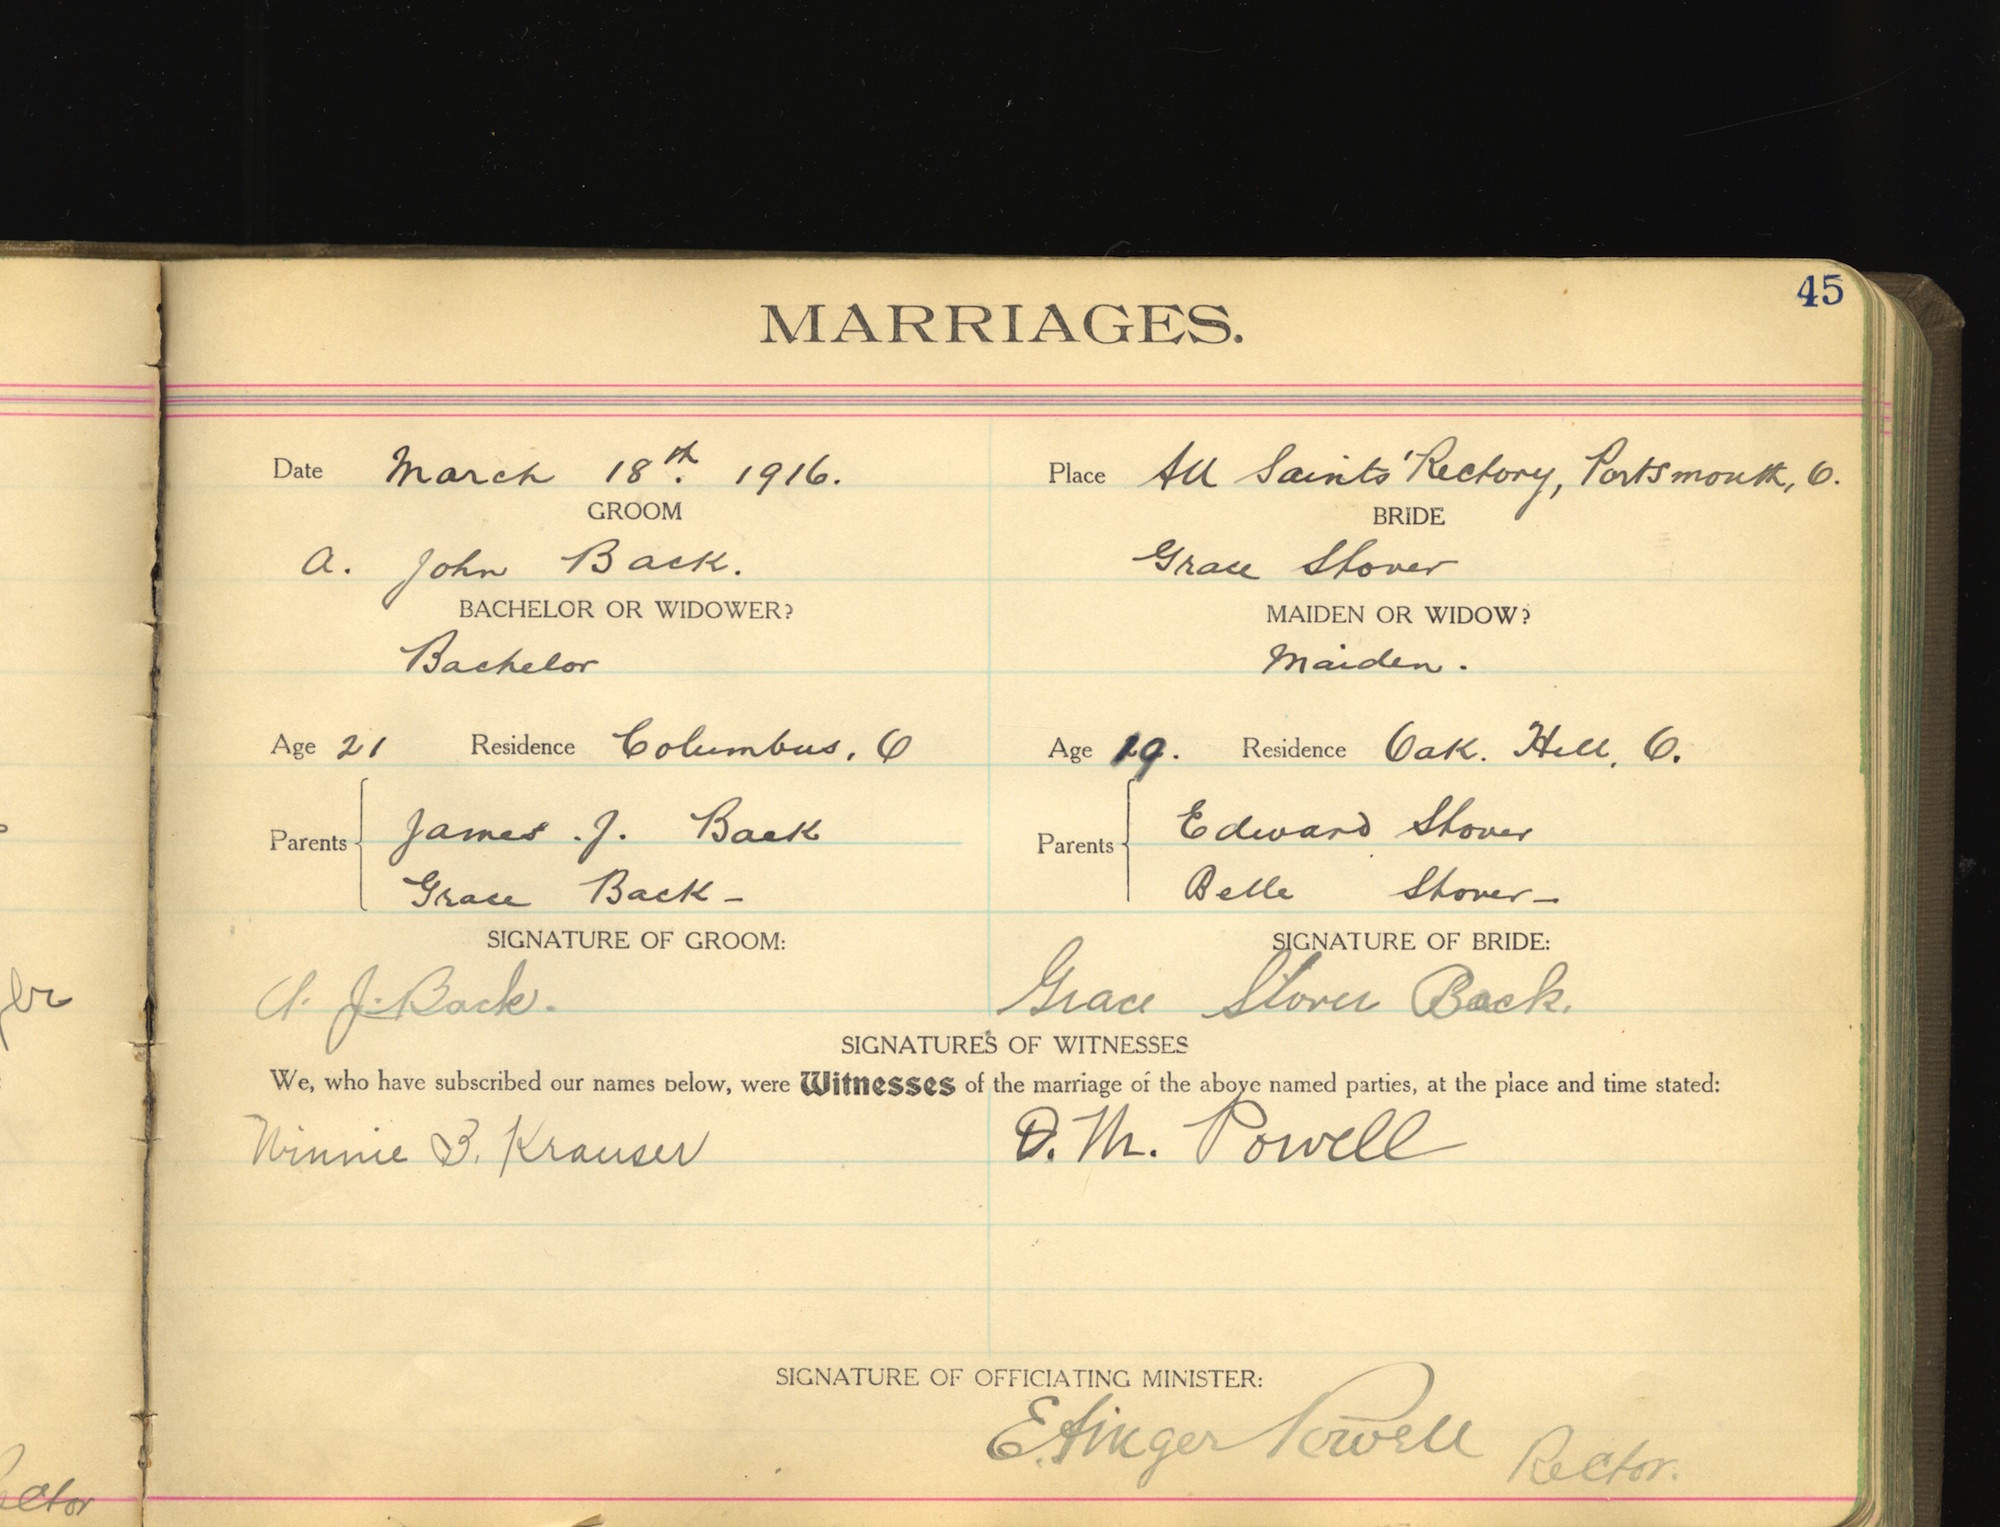 45
MARRIAGES.
Date March 18th. 1916. Place All Saints' Rectory, Portsmouth, O.
GROOM BRIDE
A. John Back. Grace Stover
BACHELOR OR WIDOWER? MAIDEN OR WIDOW?
Bachelor Maiden.
Age 21 Residence Columbus, O Age 19. Residence Oak. Hill, O.
Parents James. J. Back Parents Edward Stover
Grace Back - Belle Stover -
SIGNATURE OF GROOM: SIGNATURE OF BRIDE:
A. J. Back. Grace Stover Back.
SIGNATURES OF WITNESSES
We, who have subscribed our names below, were Witnesses of the marriage of the above named parties, at the place and time stated:
Winnie B. Krauser D. M. Powell
SIGNATURE OF OFFICIATING MINISTER:
E. Ainger Powell Rector.